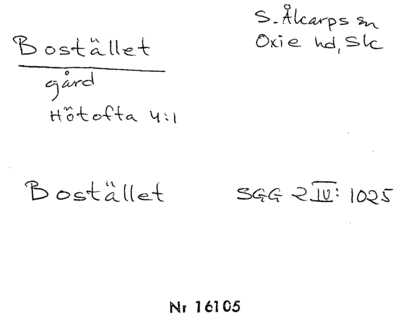 S. Åkarps sn
Bostället
Oxie hd, Slc
gård
Hötofta 4:1
Bostället SGG 2 IV: 1025
Nr 16105